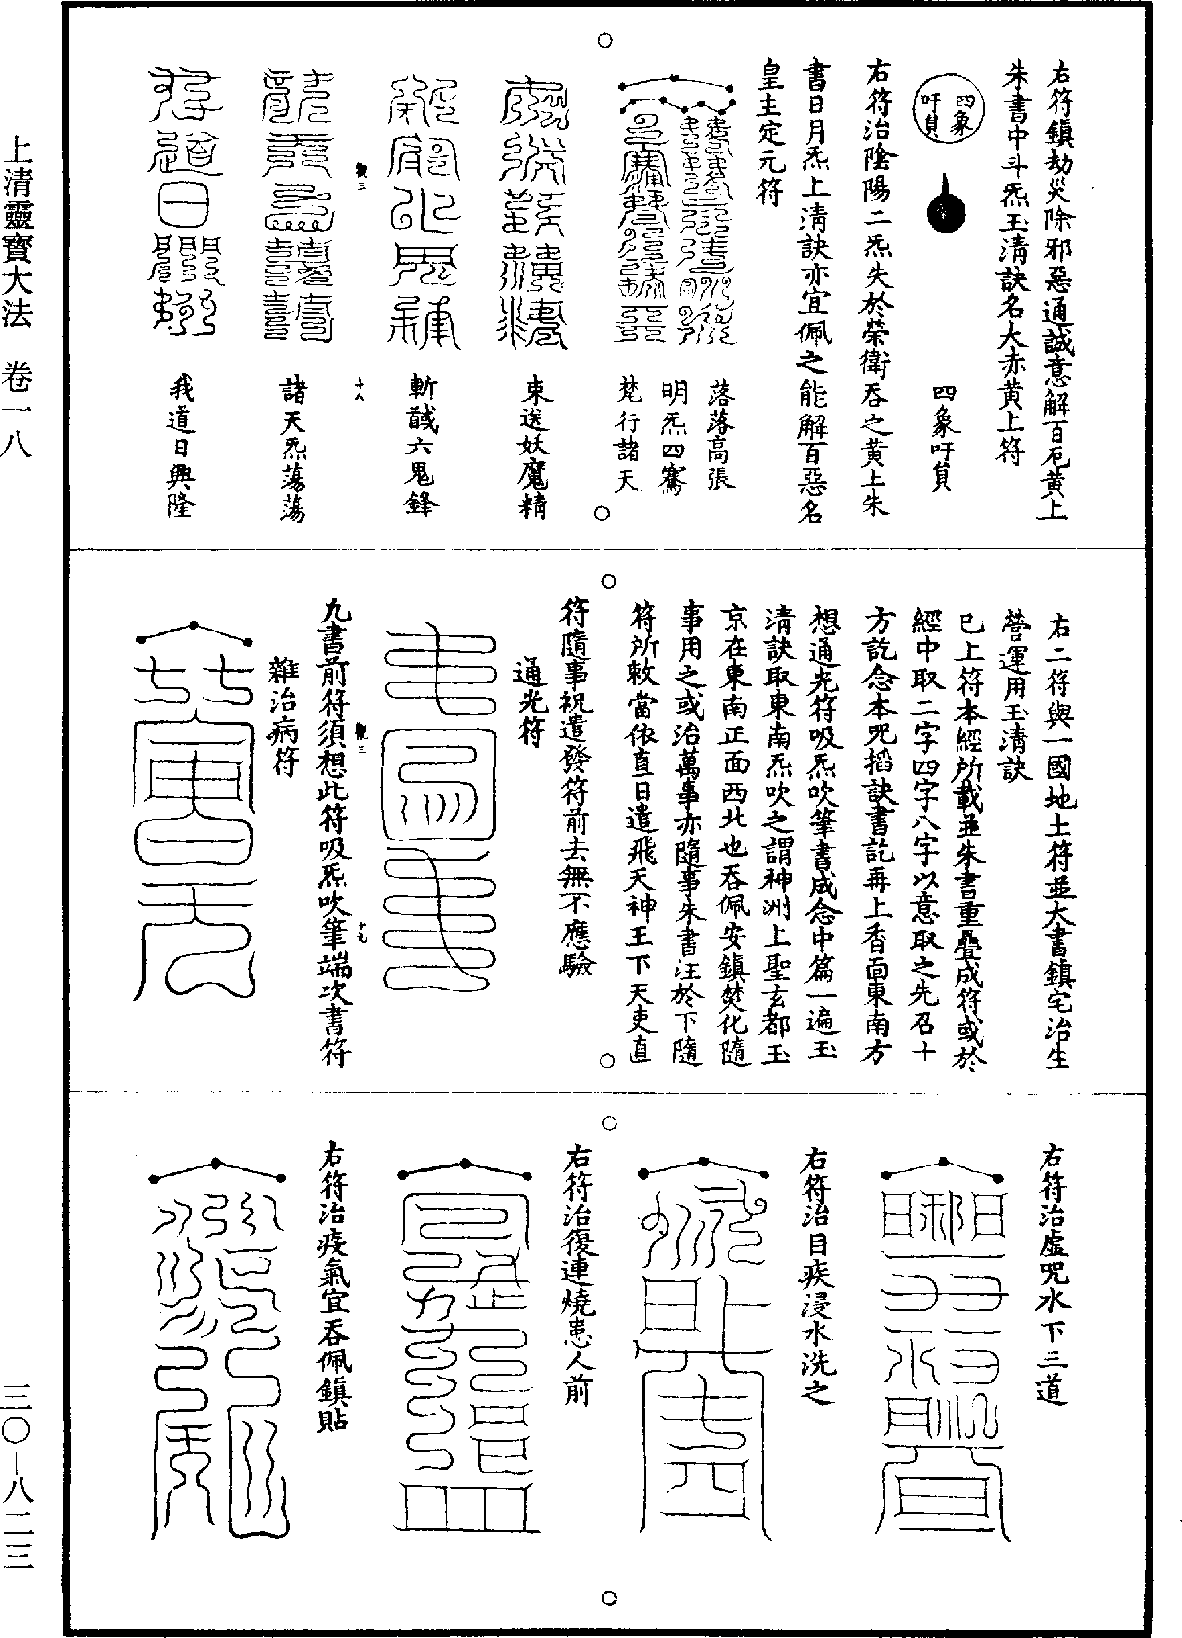 右符鎮劫災除邪惡通誠意解百厄黃上
朱書中斗炁玉清訣名大赤黃上符
四象吁貟
四象吁貟
右符治陰陽二炁失於榮衛吞之黃上朱
書日月炁上清訣亦宜佩之能解百惡名
皇主定元符
落落高張
明炁四騫
梵行諸天
束送妖魔精
斬馘六鬼鋒
十八
諸天炁蕩蕩
我道日興隆
右二符與一國地土符並大書鎮宅治生
營運用玉清訣
已上符本經所載並朱書重疊成符或於
經中取二字四字八字以意取之先召十
方訖念本咒掐訣書訖再上香面東南方
想通光符吸炁吹筆書成念中篇一遍玉
清訣取東南炁吹之謂神洲上聖玄都玉
京在東南正面西北也吞佩安鎮焚化隨
事用之或治萬事亦隨事朱書汪於下隨
符所敕當依直日遣飛天神王下天吏直
符隨事祝遣發符前去無不應驗
通光符
十九
凢書前符須想此符吸炁吹筆端次書符
雜治病符
右符治虛咒水下三道
右符治目疾浸水洗之
右符治復連燒患人前
右符治疫氣宜吞佩鎮貼
上清靈寳大法 卷一八
三〇—八二三